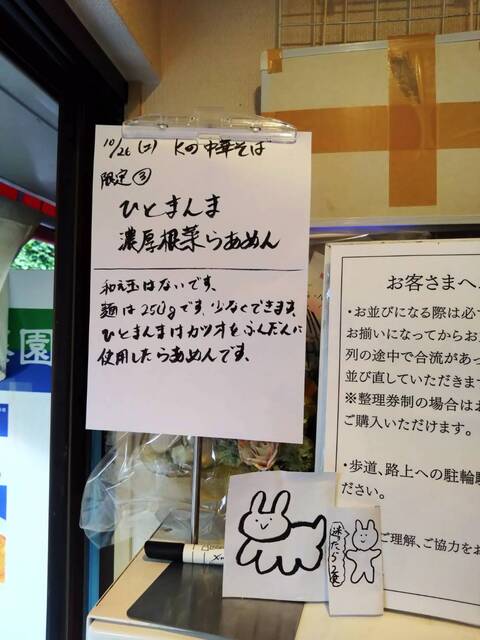 10/26(二) Kの中華そば
限定③
ひとまんま
濃厚根菜らあめん
和え玉はないです。
麺は250gです。少なくできます。
ひとまんまはカツオをふんだんに
使用したらあめんです。
園
お客さまへ
・お並びになる際は必ず
お揃いになってからお
列の途中で合流があっ
並び直していただきます
※整理券制の場合はお
ご購入いただけます。
・歩道、路上への駐輪
ださい。
ご理解、ご協力をお
迷たら2壺